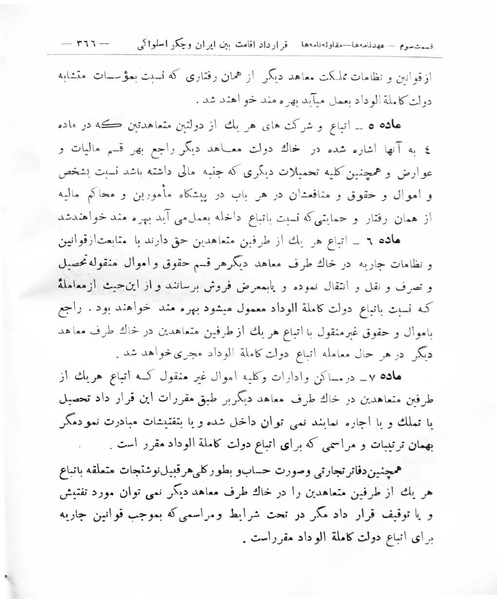 قسمت سوم - عهدنامه‌ها - مقاوله‌نامه‌ها قرارداد اقامت بین ایران و چکو اسلواکی — ۳۶۶ —
از قوانین و نظامات مملکت معاهد دیگر از همان رفتاری که نسبت بمؤسسات متشابه
دولت کاملة الوداد بعمل میآید بهره مند خواهند شد.
ماده ۵ - اتباع و شرکت های هر یك از دولتین متعاهدتین که در ماده
۴ به آنها اشاره شده در خاك دولت معاهد دیگر راجع بهر قسم مالیات و
عوارض و همچنین کلیه تحمیلات دیگری که جنبه مالی داشته باشد نسبت بشخص
و اموال و حقوق و منافعشان در هر باب در پیشگاه مأمورین و محاکم مالیه
از همان رفتار و حمایتی که نسبت باتباع داخله بعمل می آید بهره مند خواهند شد
ماده ۶ - اتباع هر یك از طرفین متعاهدین حق دارند با متابعت از قوانین
و نظامات جاریه در خاك طرف معاهد دیگر هر قسم حقوق و اموال منقوله تحصیل
و تصرف و نقل و انتقال نموده و یا بمعرض فروش برسانند و از این حیث از معاملهٔ
که نسبت باتباع دولت کاملة الوداد معمول میشود بهره مند خواهند بود. راجع
باموال و حقوق غیر منقول با اتباع هر یك از طرفین متعاهدین در خاك طرف معاهد
دیگر در هر حال معامله اتباع دولت کاملة الوداد مجری خواهد شد.
ماده ۷ - در مساکن و ادارات و کلیه اموال غیر منقول که اتباع هر یك از
طرفین متعاهدین در خاك طرف معاهد دیگر بر طبق مقررات این قرار داد تحصیل
یا تملك و یا اجاره نمایند نمی توان داخل شده و یا بتفتیشات مبادرت نمود مگر
بهمان ترتیبات و مراسمی که برای اتباع دولت کاملة الوداد مقرر است .
همچنین دفاتر تجارتی و صورت حساب و بطور کلی هر قبیل نوشتجات متعلقه باتباع
هر یك از طرفین متعاهدین را در خاك طرف معاهد دیگر نمی توان مورد تفتیش
و یا توقیف قرار داد مگر در تحت شرایط و مراسمی که بموجب قوانین جاریه
برای اتباع دولت کاملة الوداد مقرر است.